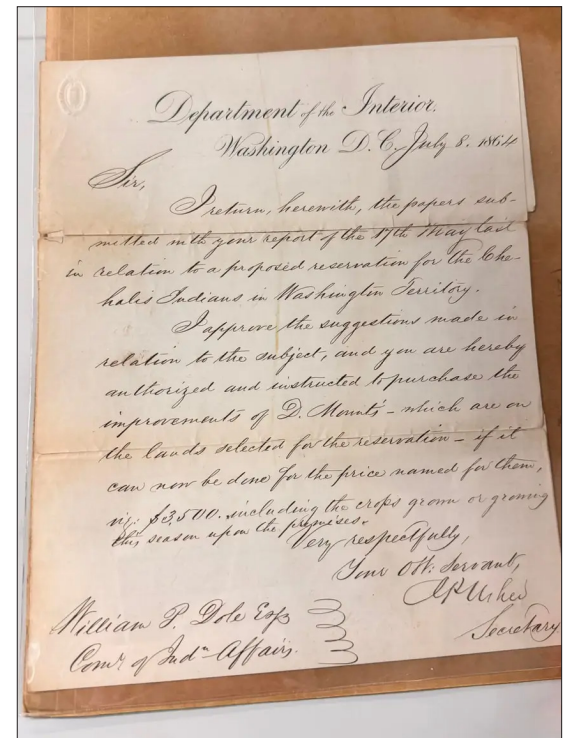 Department of the Interior.
Washington D. C. July 8. 1864
Sir,
I return, herewith, the papers sub-
mitted with your report of the 17th May last
in relation to a proposed reservation for the Che-
halis Indians in Washington Territory.
I approve the suggestions made in
relation to the subject, and you are hereby
authorized and instructed to purchase the
improvements of D. Mounts' – which are on
the lands selected for the reservation – if it
can now be done for the price named for them,
viz: $3,500. including the crops grown or growing
this season upon the premises.
Very respectfully,
Your Obt: Servant,
J P Usher
Secretary
William P. Dole Esq
Comr of Indn Affairs.